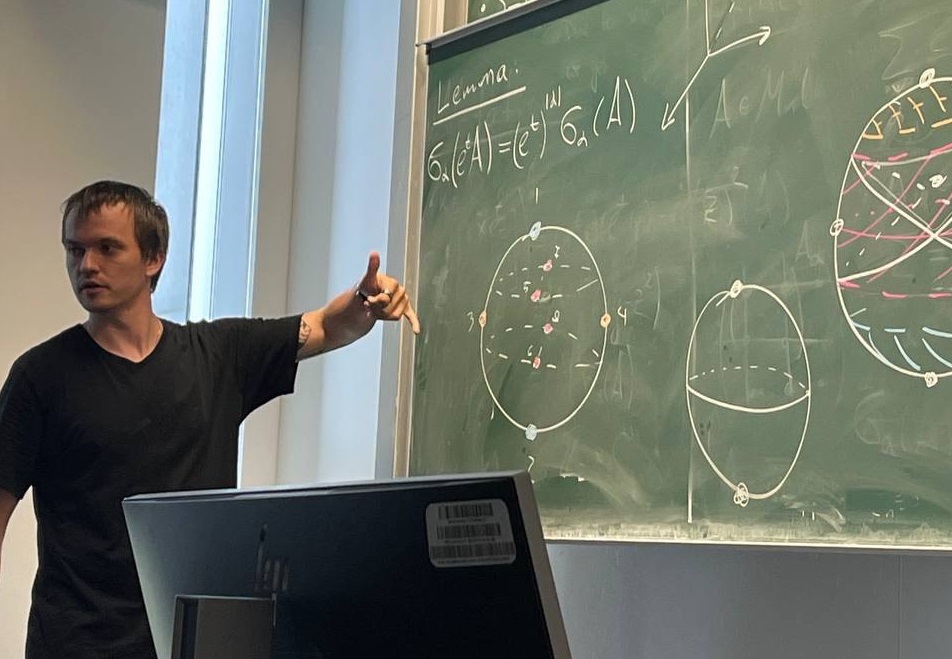 Lemma:
σ_α(e^t A) = (e^t)^|α| σ_α(A)
1
7
5
3
4
8
6
2
A ∈ M